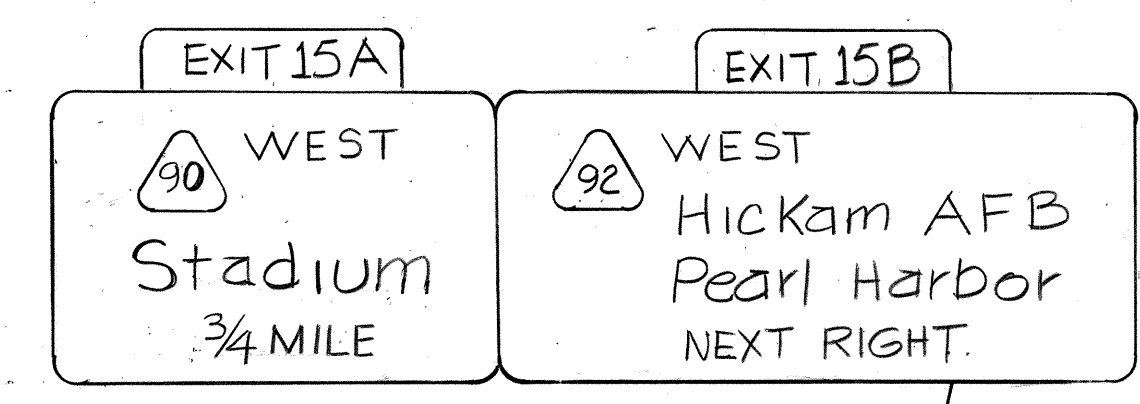 EXIT 15A
90 WEST
Stadium
3/4 MILE
EXIT 15B
92 WEST
Hickam AFB
Pearl Harbor
NEXT RIGHT.